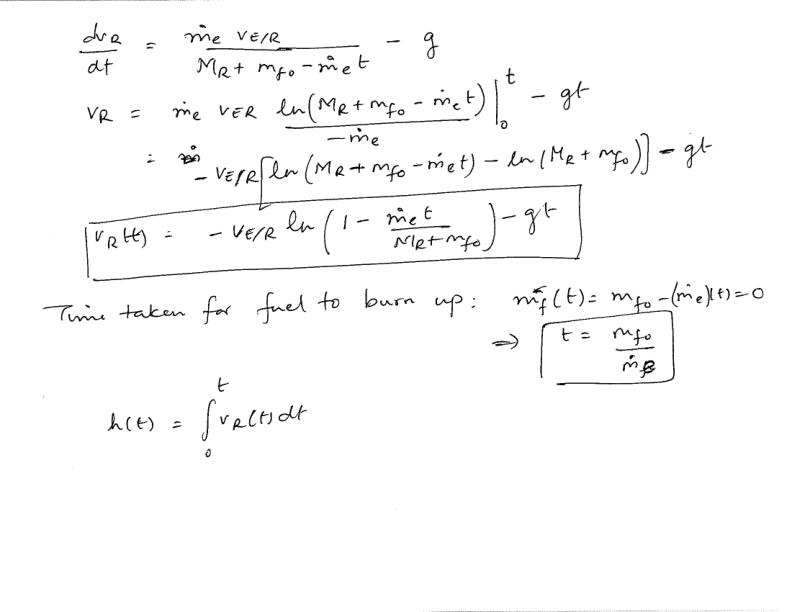 dv_R/dt = ṁ_e v_E/R / (M_R + m_fo - ṁ_e t) - g
v_R = ṁ_e v_ER ln(M_R + m_fo - ṁ_e t) / -ṁ_e |_0^t - gt
= - v_E/R [ln(M_R + m_fo - ṁ_e t) - ln(M_R + m_fo)] - gt
v_R(t) = - v_E/R ln(1 - ṁ_e t / (M_R + m_fo)) - gt
Time taken for fuel to burn up: m_f(t) = m_fo - (ṁ_e)(t) = 0
⇒ t = m_fo / ṁ_e
h(t) = ∫_0^t v_R(t) dt